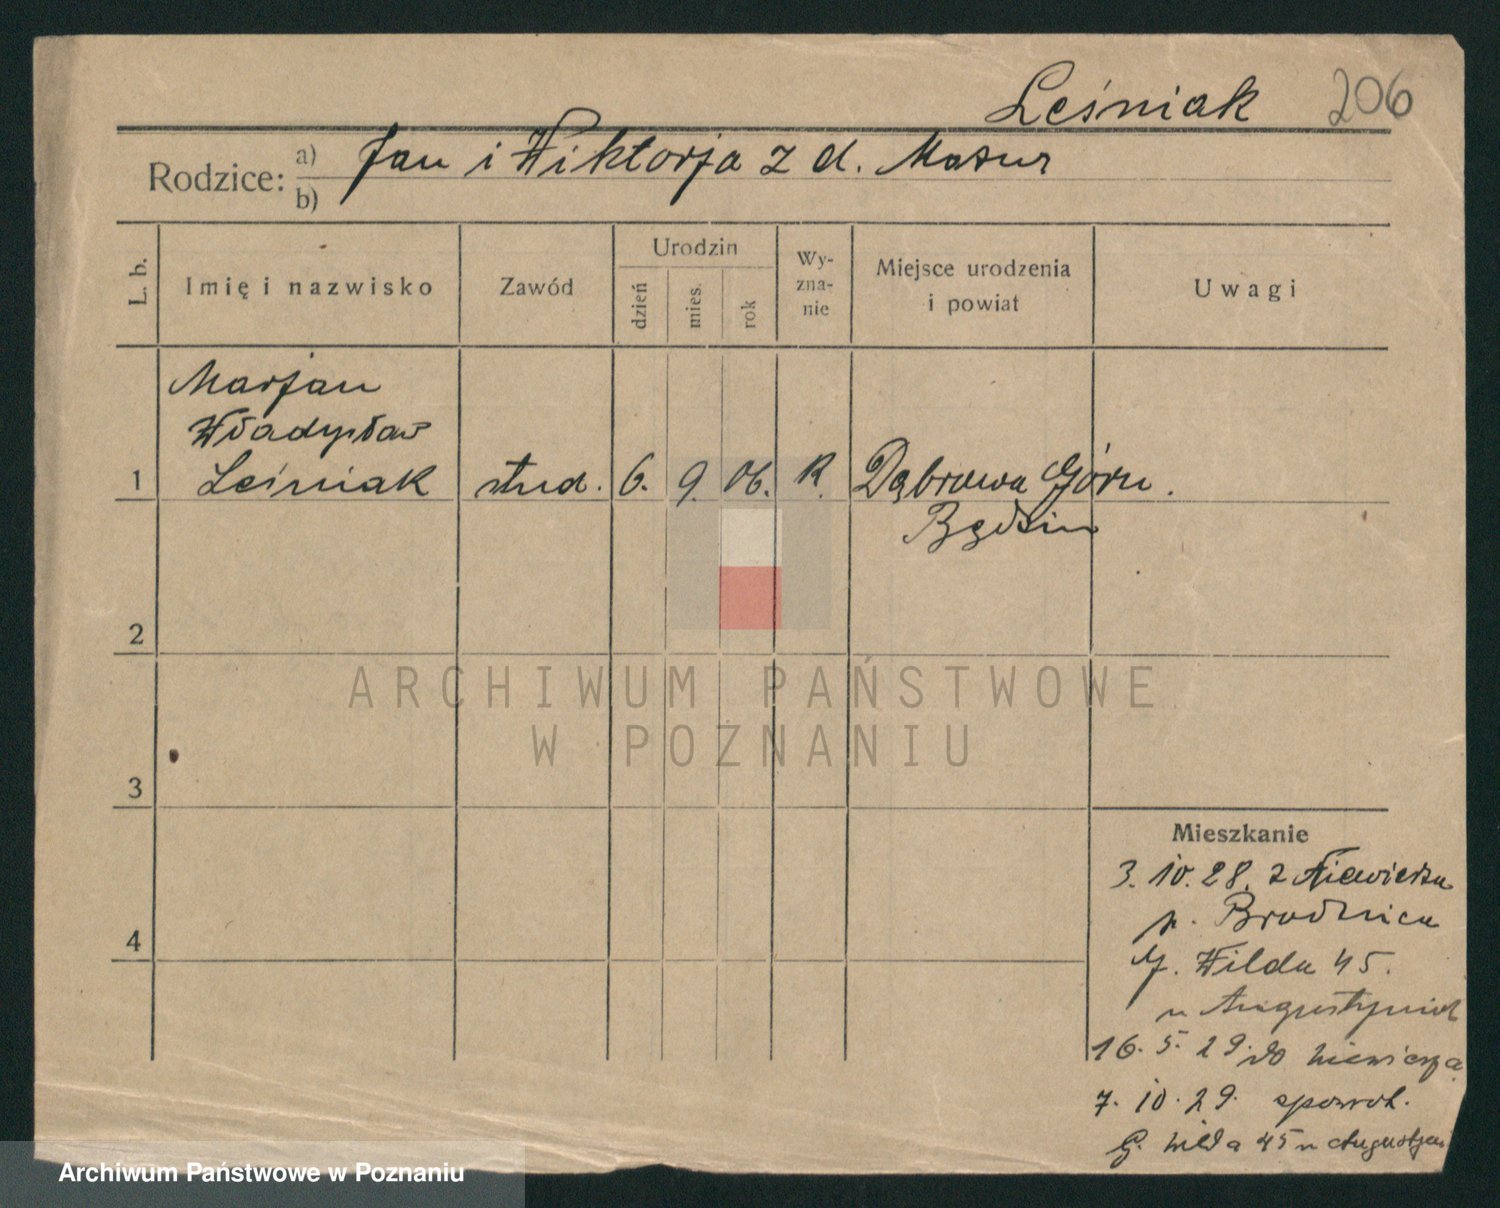 Leśniak 206
Rodzice: a) Jan i Wiktorja z d. Mazur
b)
L. b. Imię i nazwisko Zawód Urodzin dzień mies. rok Wy-zna-nie Miejsce urodzenia i powiat Uwagi
Marjan
Władysław
1 Leśniak stud. 6. 9. 06. R. Dąbrowa Górn.
Będzin
2
ARCHIWUM PAŃSTWOWE
W POZNANIU
3
Mieszkanie
3. 10. 28. z
p. Brodnica
4
G. Wilda 45.
u Augustyniak
16. 5. 29. do
7. 10. 29. spowrot.
G. Wilda 45 u
Archiwum Państwowe w Poznaniu